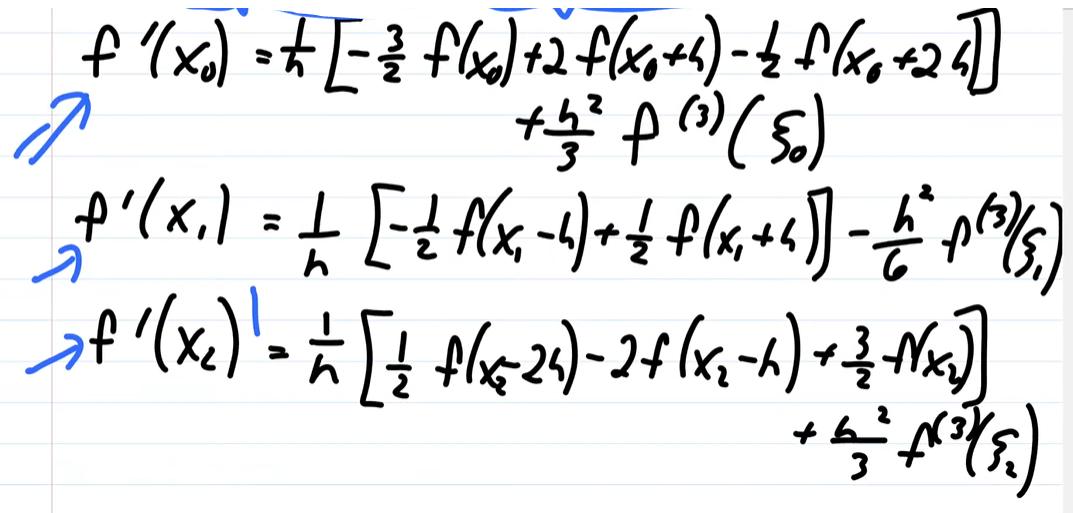 f'(x₀) = 1/h [-3/2 f(x₀) + 2 f(x₀+h) - 1/2 f(x₀+2h)]
+ h²/3 f⁽³⁾(ξ₀)
f'(x₁) = 1/h [-1/2 f(x₁-h) + 1/2 f(x₁+h)] - h²/6 f⁽³⁾(ξ₁)
f'(x₂) = 1/h [1/2 f(x₂-2h) - 2f(x₂-h) + 3/2 f(x₂)]
+ h²/3 f⁽³⁾(ξ₂)